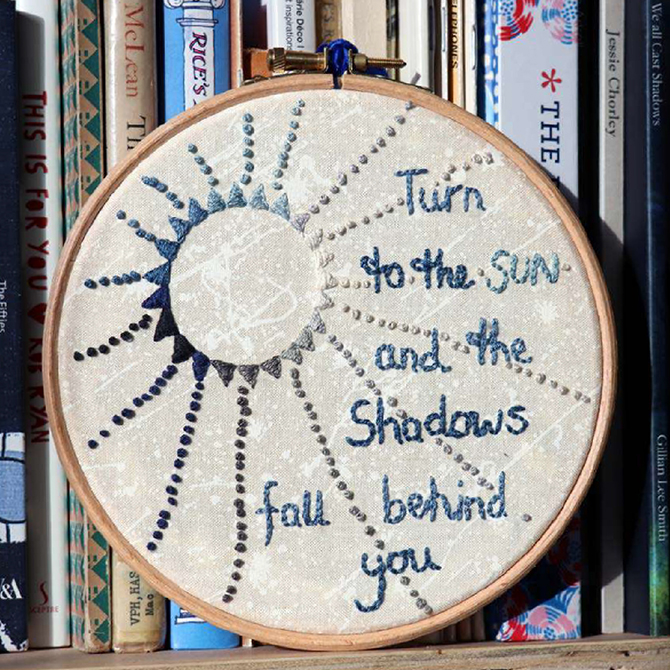 Turn
to the SUN
and the
Shadows
fall behind
you
The Fifties
V&A
THIS IS FOR YOU ♥ ROB RYAN
SCEPTRE
McLean
RICE'S
THE
Jessie Chorley
We all Cast Shadows
Gillian Lee Smith